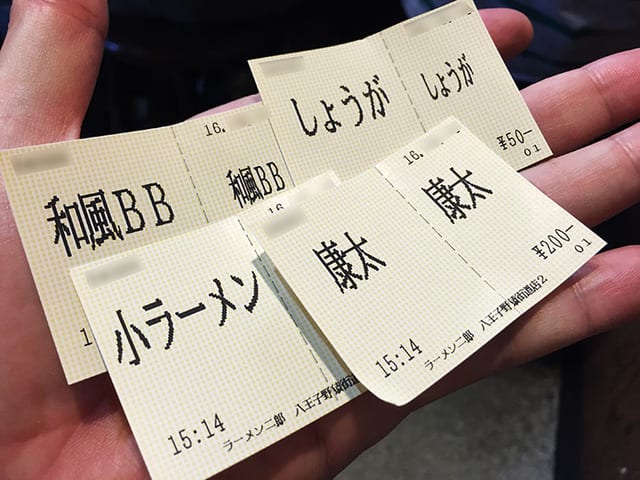 しょうが
しょうが
¥50−
01
16.
和風BB
和風BB
16
小ラーメン
15:14
ラーメン二郎 八王子野猿街道
16.
康太
康太
¥200−
01
15:14
ラーメン二郎 八王子野猿街道店2